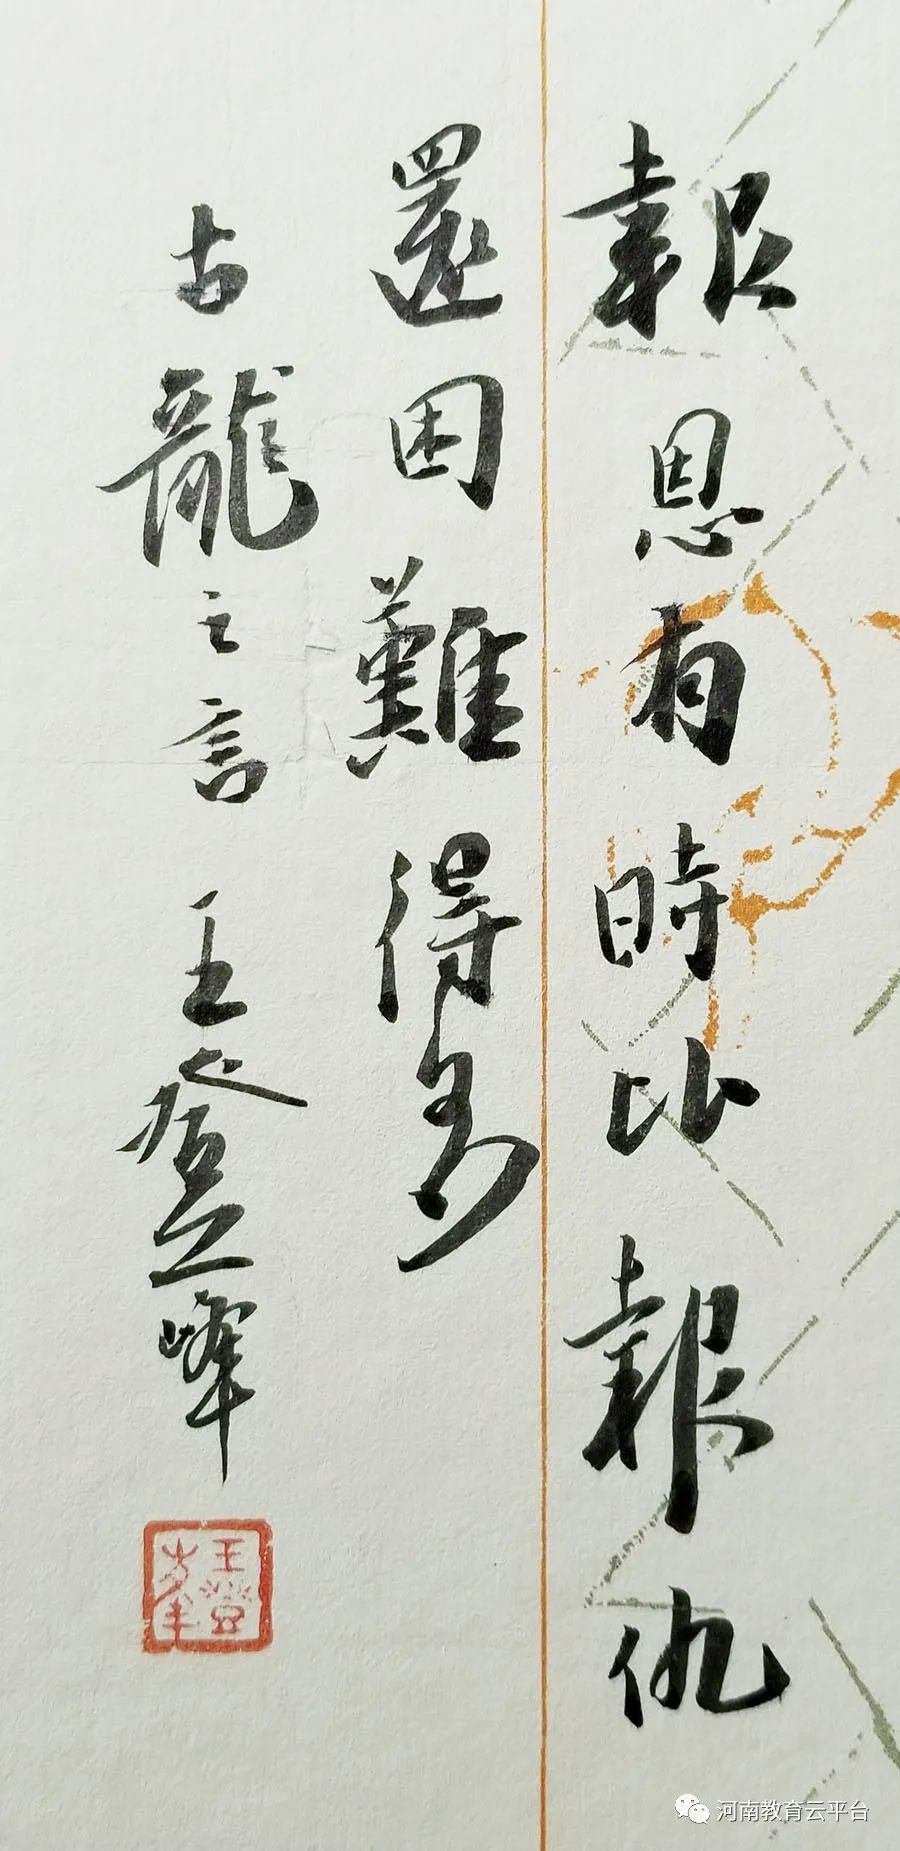 報恩有時比報仇
還困難得多
古龍之言 王登峰
王登峰
河南教育云平台